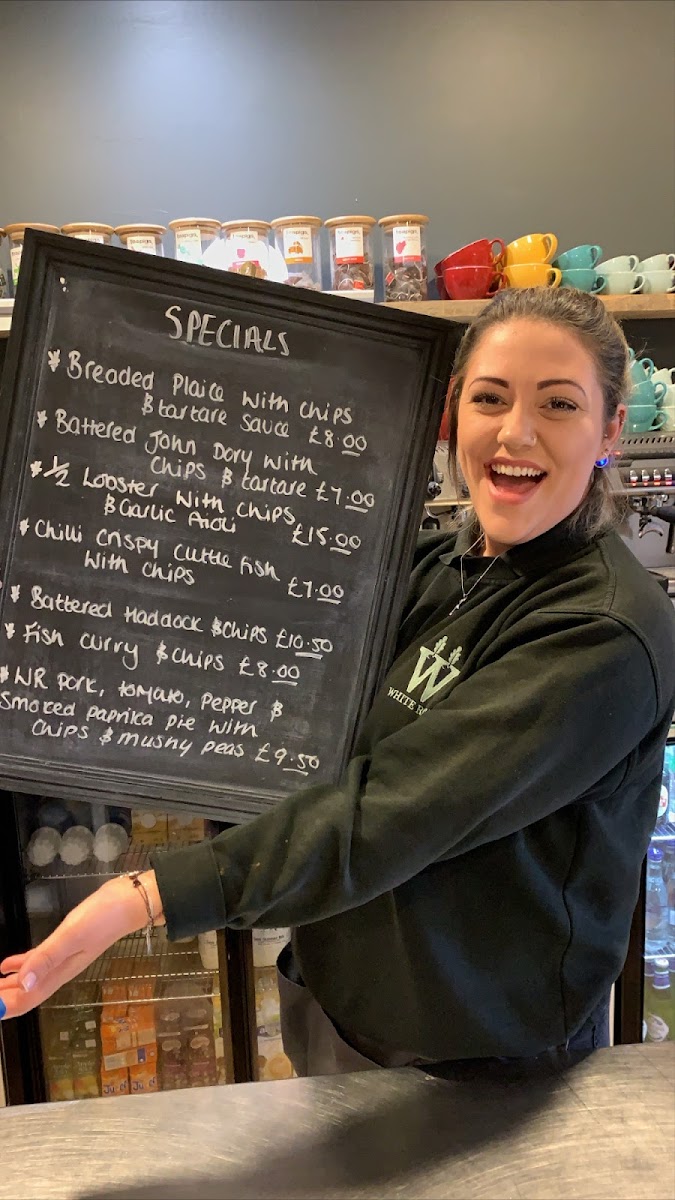 SPECIALS
* Breaded Plaice with chips
& tartare sauce £8.00
* Battered John Dory with
chips & tartare £7.00
* 1/2 Lobster with chips
& Garlic Aioli £15.00
* Chilli crispy cuttle fish
with chips £7.00
* Battered Haddock & chips £10.50
* Fish curry & chips £8.00
* WR pork, tomato, pepper &
smoked paprika pie with
chips & mushy peas £9.50
W
WHITE